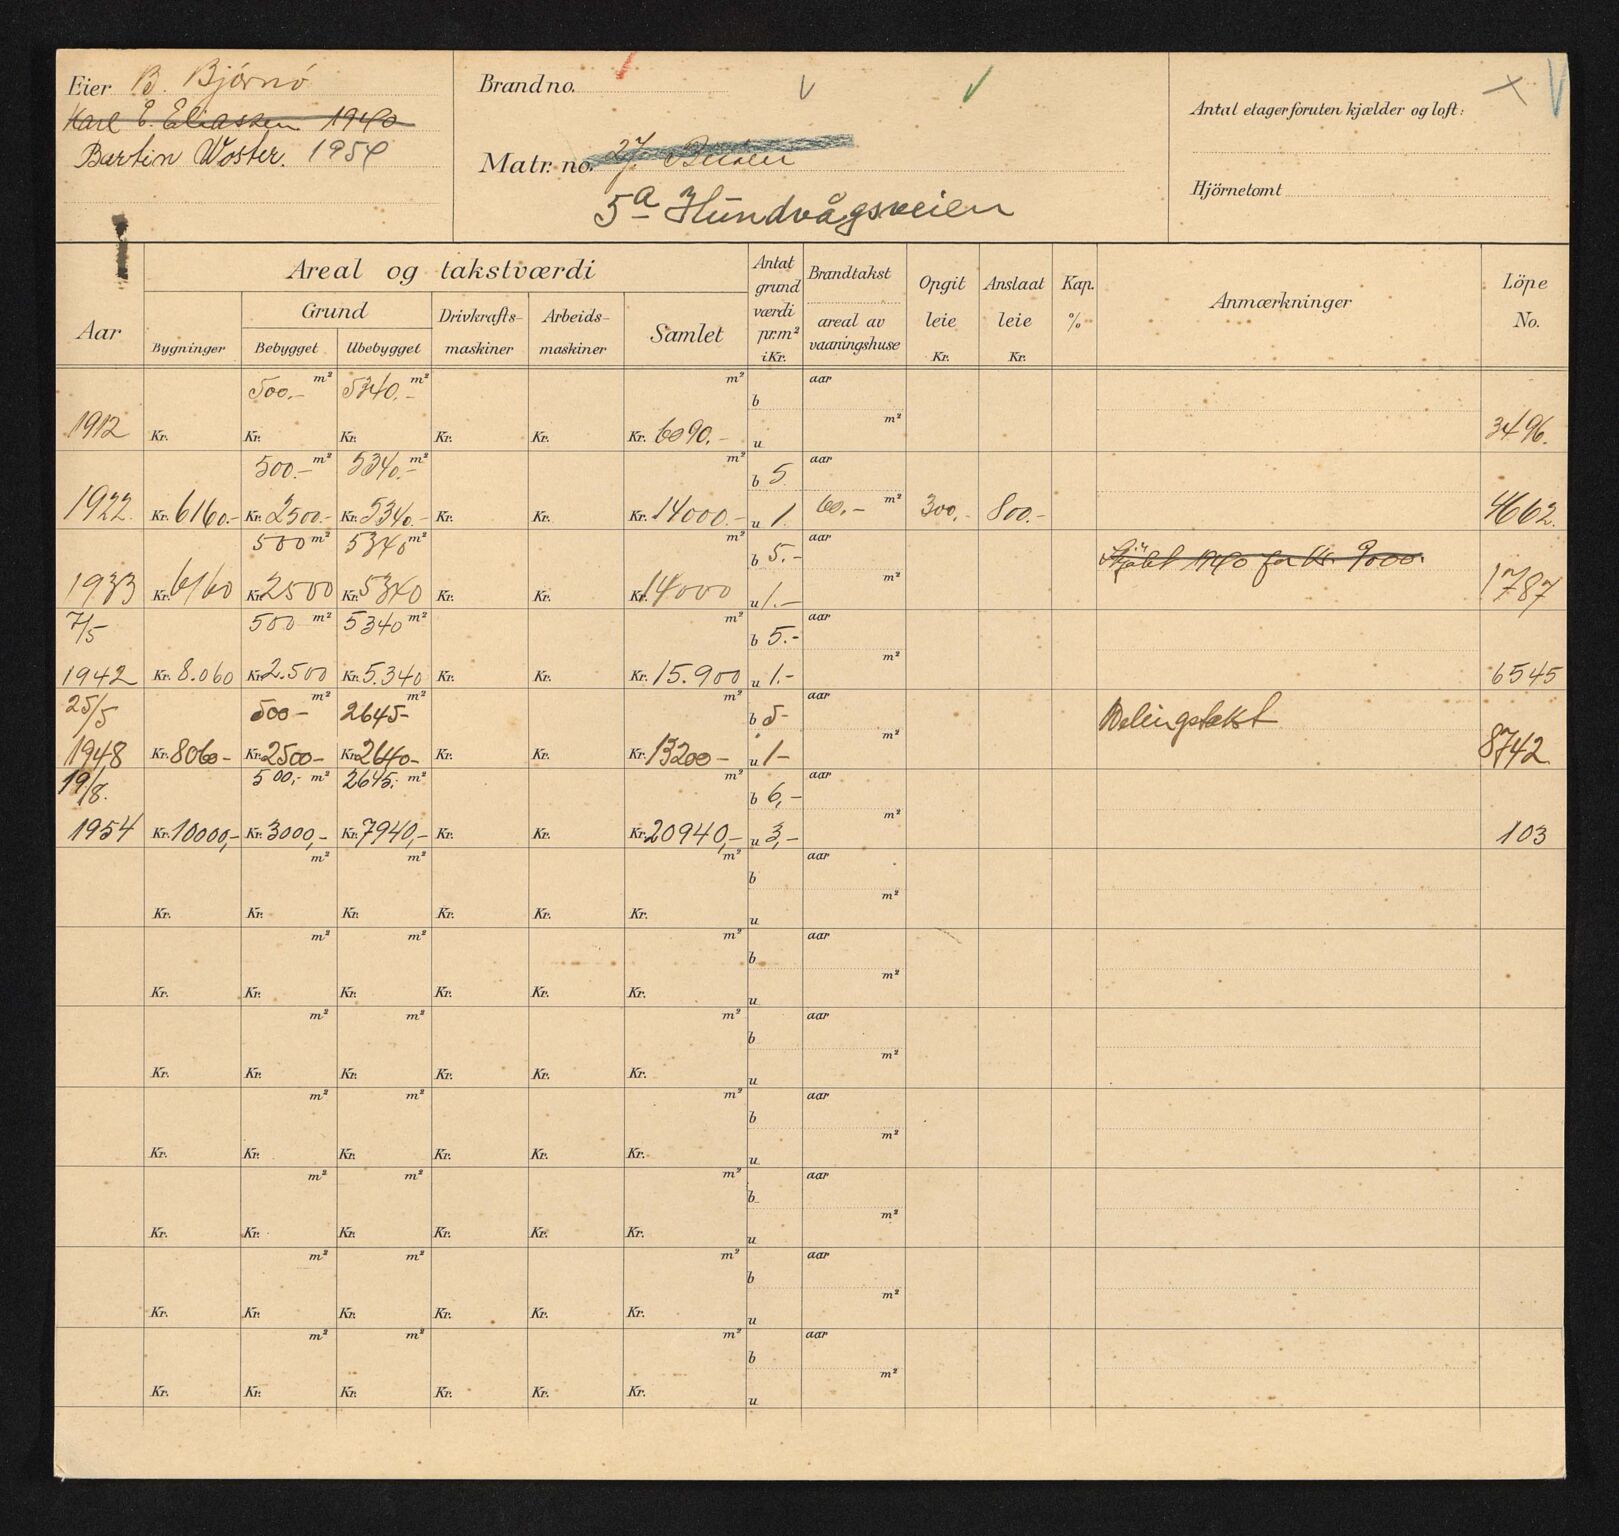 Eier B. Bjórnó
Karl E. Eliassen 1940
Bertin Woster. 1954
Brand no.
Matr. no. 27. Buøen
5a Hundvågsveien
Antal etager foruten kjælder og loft:
Hjörnetomt
Aar
Areal og takstværdi
Bygninger
Grund
Bebygget Ubebygget
Drivkrafts-
maskiner
Arbeids-
maskiner
Samlet
Antat
grund
værdi
pr. m²
i Kr.
Brandtakst
areal av
vaaningshuse
Opgit
leie
Kr.
Anslaat
leie
Kr.
Kap.
%
Anmærkninger
Löpe
No.
500.- m² 5340.- m² m² b aar
1912 Kr. Kr. Kr. Kr. Kr. Kr. 6090.- u m² 3496.
500.- m² 5340.- m² m² b 5. aar
1922 Kr. 6160.- Kr. 2500.- Kr. 5340.- Kr. Kr. Kr. 14000.- u 1. 60.- m² 300.- 800.- 4662.
500 m² 5340 m² m² b 5.- aar Skjøtet 1940 for kr. 9000.
1933 Kr. 6160 Kr. 2500 Kr. 5340 Kr. Kr. Kr. 14000 u 1.- m² 1787
7/5 500 m² 5340 m² m² b 5.- aar
1942 Kr. 8.060 Kr. 2.500 Kr. 5.340 Kr. Kr. Kr. 15.900 u 1.- m² 6545
25/5 500- m² 2645- m² m² b 5- aar Delingstakst
1948 Kr. 8060- Kr. 2500- Kr. 2640- Kr. Kr. Kr. 13200- u 1- m² 8742
19/8. 500,- m² 2645,- m² m² b 6,- aar
1954 Kr. 10000,- Kr. 3000,- Kr. 7940,- Kr. Kr. Kr. 20940,- u 3,- m² 103
m² m² m² b aar
Kr. Kr. Kr. Kr. Kr. Kr. u m²
m² m² m² b aar
Kr. Kr. Kr. Kr. Kr. Kr. u m²
m² m² m² b aar
Kr. Kr. Kr. Kr. Kr. Kr. u m²
m² m² m² b aar
Kr. Kr. Kr. Kr. Kr. Kr. u m²
m² m² m² b aar
Kr. Kr. Kr. Kr. Kr. Kr. u m²
m² m² m² b aar
Kr. Kr. Kr. Kr. Kr. Kr. u m²
m² m² m² b aar
Kr. Kr. Kr. Kr. Kr. Kr. u m²